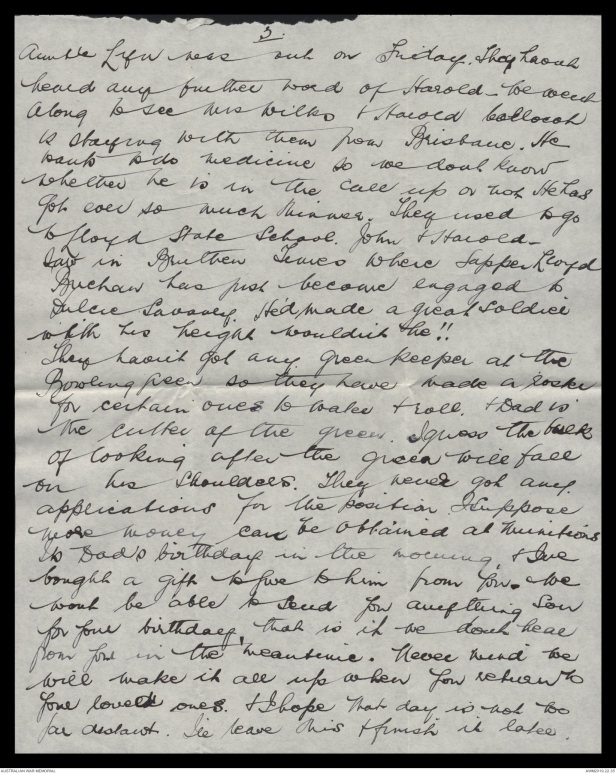 3.
Auntie Lyn was out on Friday. They havent
heard any further word of Harold - We went
along to see Mrs Wilks & Harold
is staying with them from Brisbane. He
wants to do medicine so we dont know
whether he is in the call up or not. He has
got ever so much thinner. They used to go
to Floyd State School. John & Harold -
Saw in Bruthen Times where Sapper Lloyd
Buchan has just become engaged to
Dulcie Savaney. He'd made a great soldier
with his height wouldn't he!!
They havin't got any green keeper at the
Bowling green so they have made a roster
for certain ones to water & roll. & Dad is
the cutter of the green. I guess the bulk
of looking after the green will fall
on his shoulders. They never got any
applications for the position. I suppose
more money can be obtained at munitions
Is Dad's birthday in the morning, & I've
bought a gift to give to him from you. We
wont be able to send you anything Son
for your birthday, that is if we dont hear
from you in the meantime. Never mind we
will make it all up when you return to
your loved ones. & I hope that day is not too
far distant. I'll leave this & finish it later.
AUSTRALIAN WAR MEMORIAL